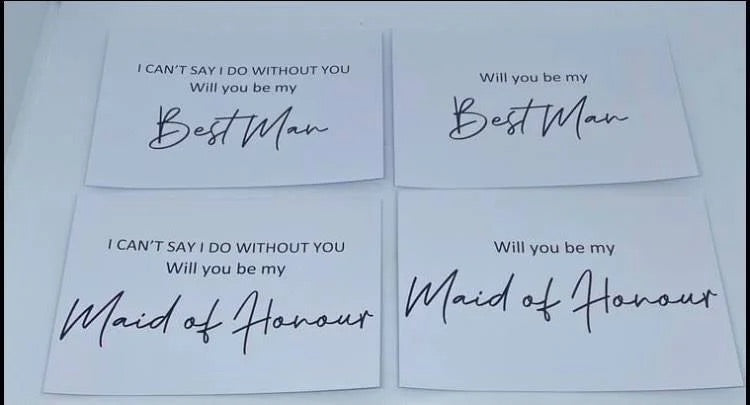 I CAN'T SAY I DO WITHOUT YOU
Will you be my
Best Man
Will you be my
Best Man
I CAN'T SAY I DO WITHOUT YOU
Will you be my
Maid of Honour
Will you be my
Maid of Honour